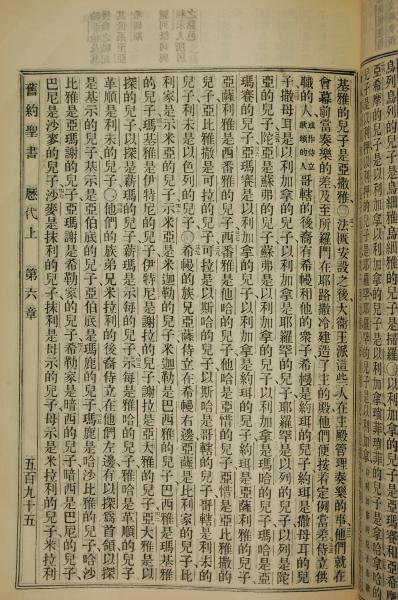 烏列烏列的兒子是烏細雅烏細雅的兒子是掃羅○以利加拿的兒子是亞瑪賽和亞希摩
亞希摩的兒子是以利加拿以利加拿的兒子是瑣菲瑣菲的兒子是拿哈拿哈的
基雅的兒子是亞撒雅○法匱安設之後大衛王派這些人在主殿管理奏樂的事他們就在
會幕前當奏樂的差及至所羅門在耶路撒冷建造了主的殿他們便按着定例當差侍立供
職的人或作侍立歌頌的人哥轄的後裔有希幔和他的衆子希幔是約珥的兒子約珥是撒母耳的兒
子撒母耳是以利加拿的兒子以利加拿是耶羅罕的兒子耶羅罕是以列的兒子以列是陀
亞的兒子陀亞是蘇弗的兒子蘇弗是以利加拿的兒子以利加拿是瑪哈的兒子瑪哈是亞
瑪賽的兒子亞瑪賽是以利加拿的兒子以利加拿是約珥的兒子約珥是亞薩利雅的兒子
亞薩利雅是西番雅的兒子西番雅是他哈的兒子他哈是亞惜的兒子亞惜是亞比雅撒的
兒子亞比雅撒是可拉的兒子可拉是以斯哈的兒子以斯哈是哥轄的兒子哥轄是利未的
兒子利未是以色列的兒子○希幔的族兄亞薩侍立在希幔右邊亞薩是比利家的兒子比
利家是示米亞的兒子示米亞是米迦勒的兒子米迦勒是巴西雅的兒子巴西雅是瑪基雅
的兒子瑪基雅是伊特尼的兒子伊特尼是謝拉的兒子謝拉是亞大雅的兒子亞大雅是以
探的兒子以探是薪瑪的兒子薪瑪是示每的兒子示每是雅哈的兒子雅哈是革順的兒子
革順是利未的兒子○他們的族弟兄米拉利的後裔侍立在他們左邊有以探爲首領以探
是基示的兒子基示是亞伯底的兒子亞伯底是瑪鹿的兒子瑪鹿是哈沙比雅的兒子哈沙
比雅是亞瑪謝的兒子亞瑪謝是希勒家的兒子希勒家是暗西的兒子暗西是巴尼的兒子
巴尼是沙麥的兒子沙麥是抹利的兒子抹利是母示的兒子母示是米拉利的兒子米拉利
舊約聖書 歷代上 第六章 五百九十五